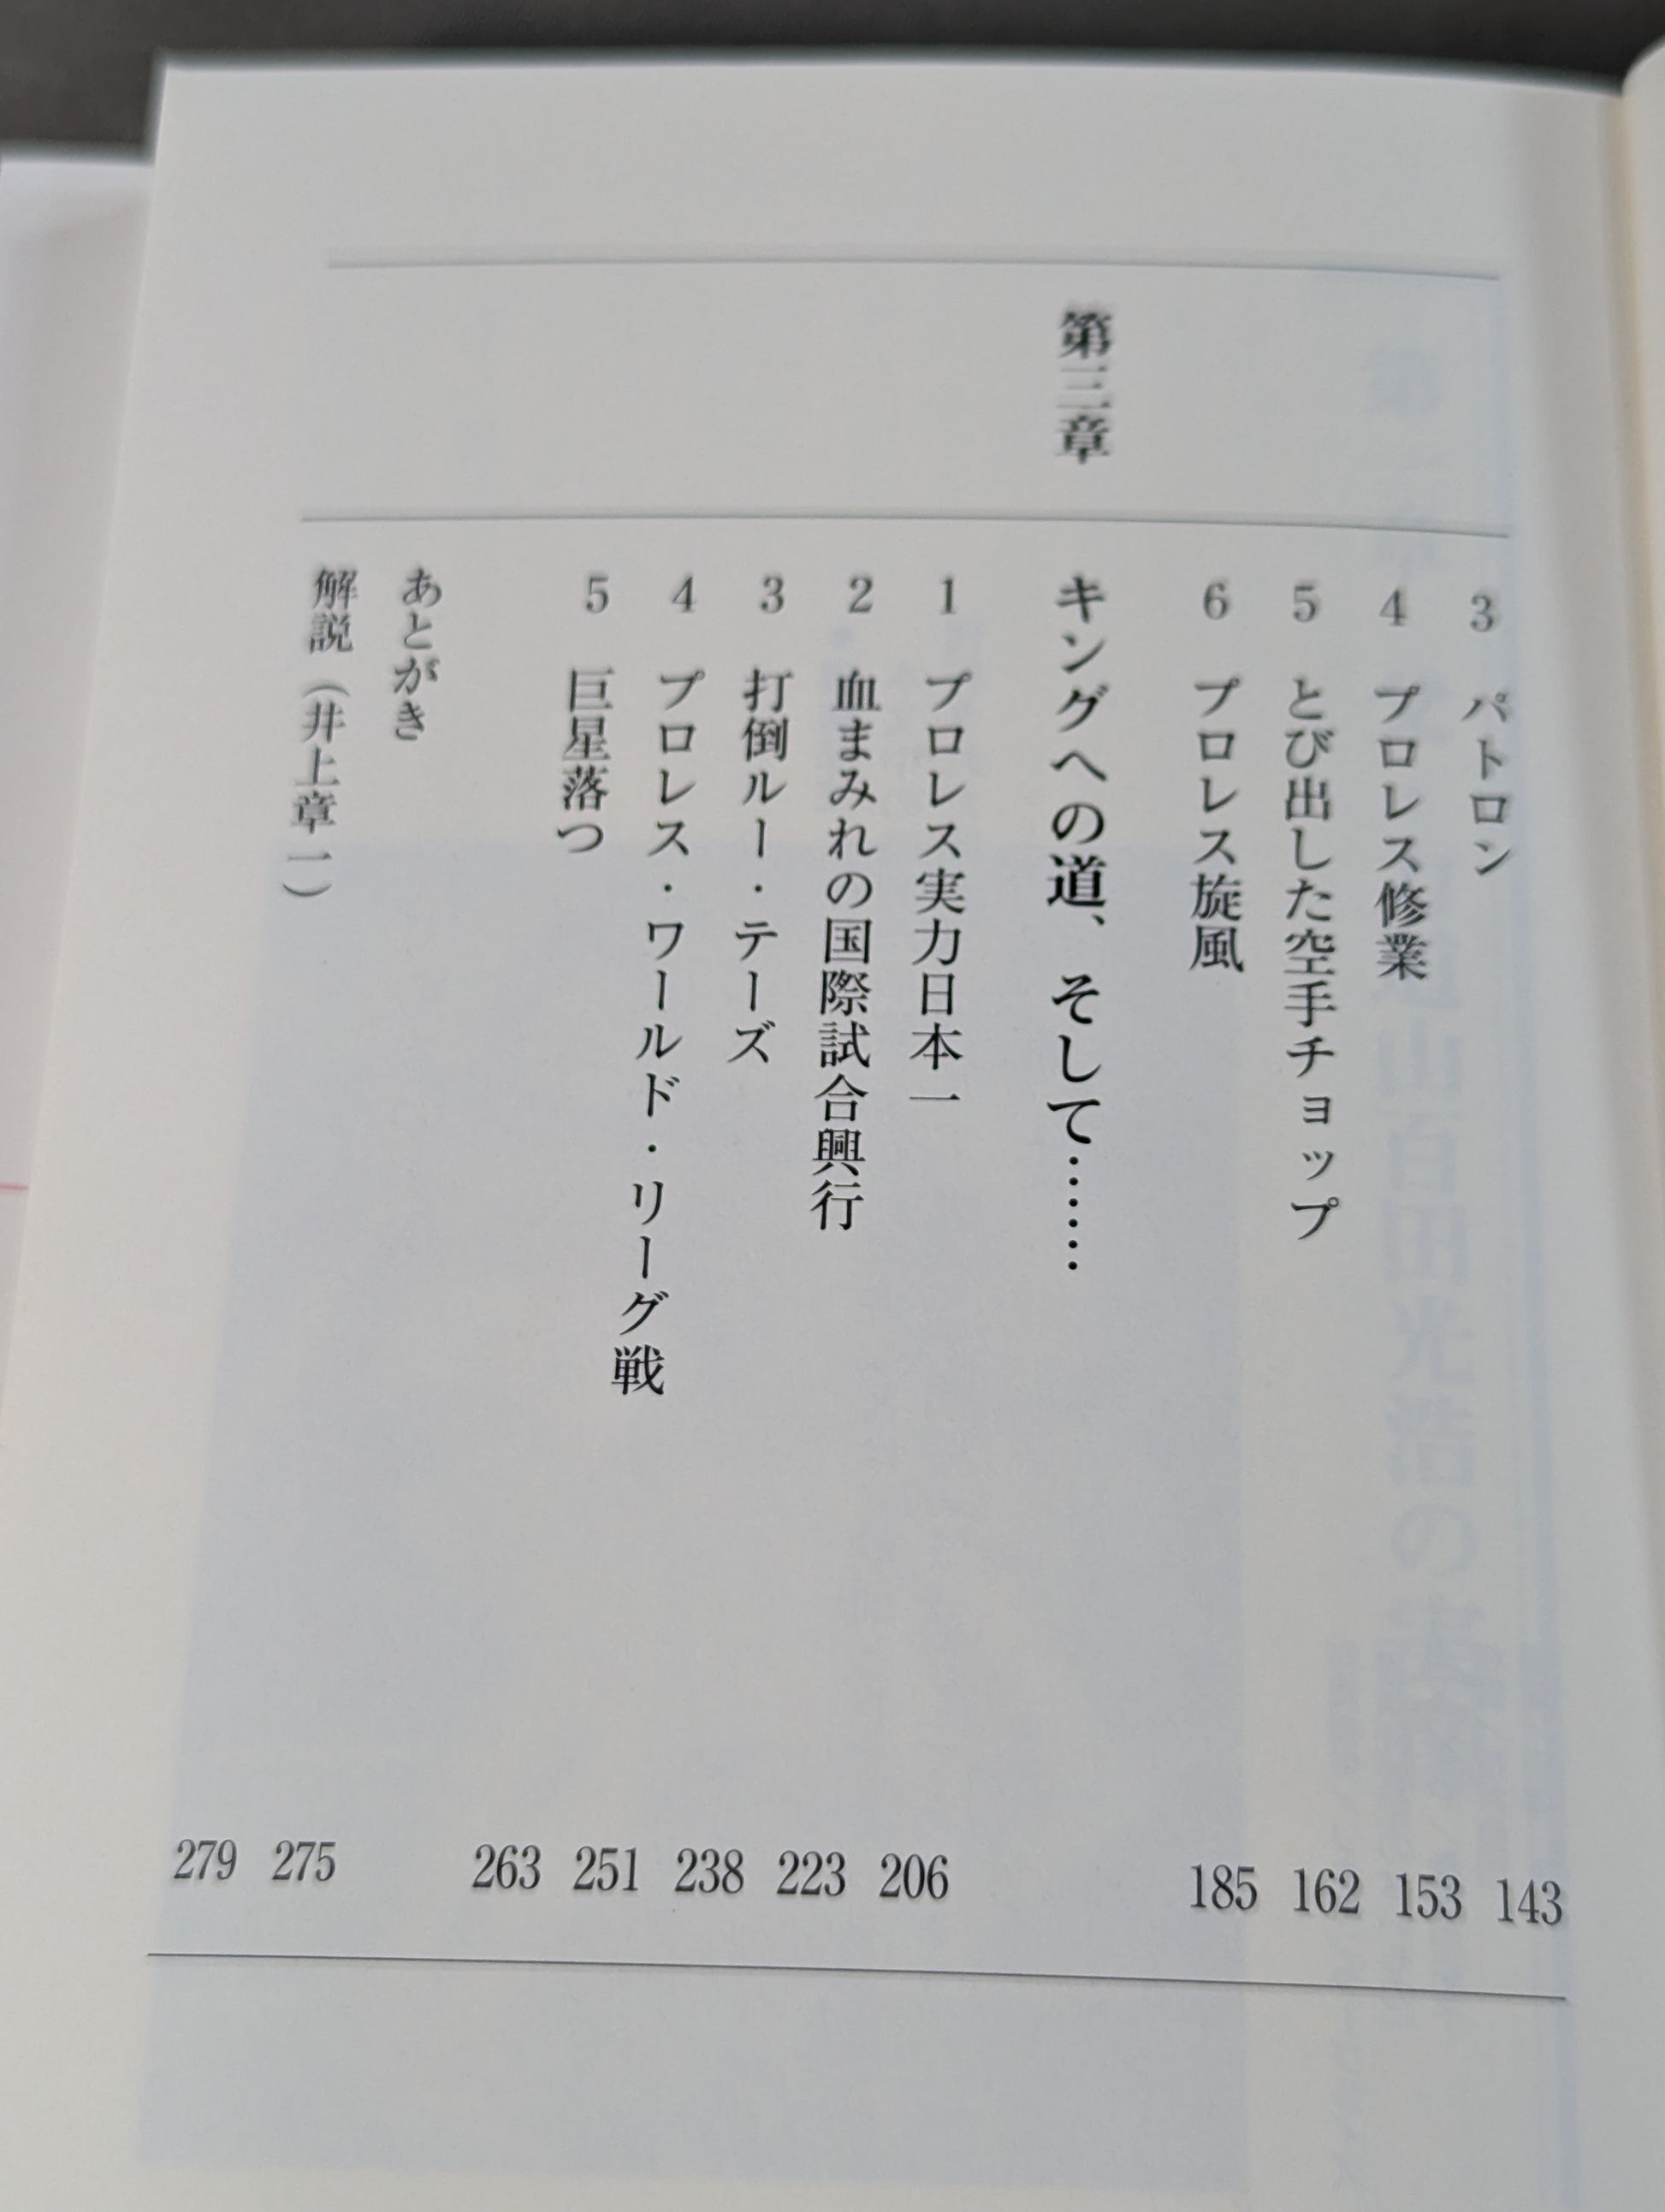 3 パトロン 143
4 プロレス修業 153
5 とび出した空手チョップ 162
6 プロレス旋風 185
第三章 キングへの道、そして……
1 プロレス実力日本一 206
2 血まみれの国際試合興行 223
3 打倒ルー・テーズ 238
4 プロレス・ワールド・リーグ戦 251
5 巨星落つ 263
あとがき 275
解説（井上章一） 279